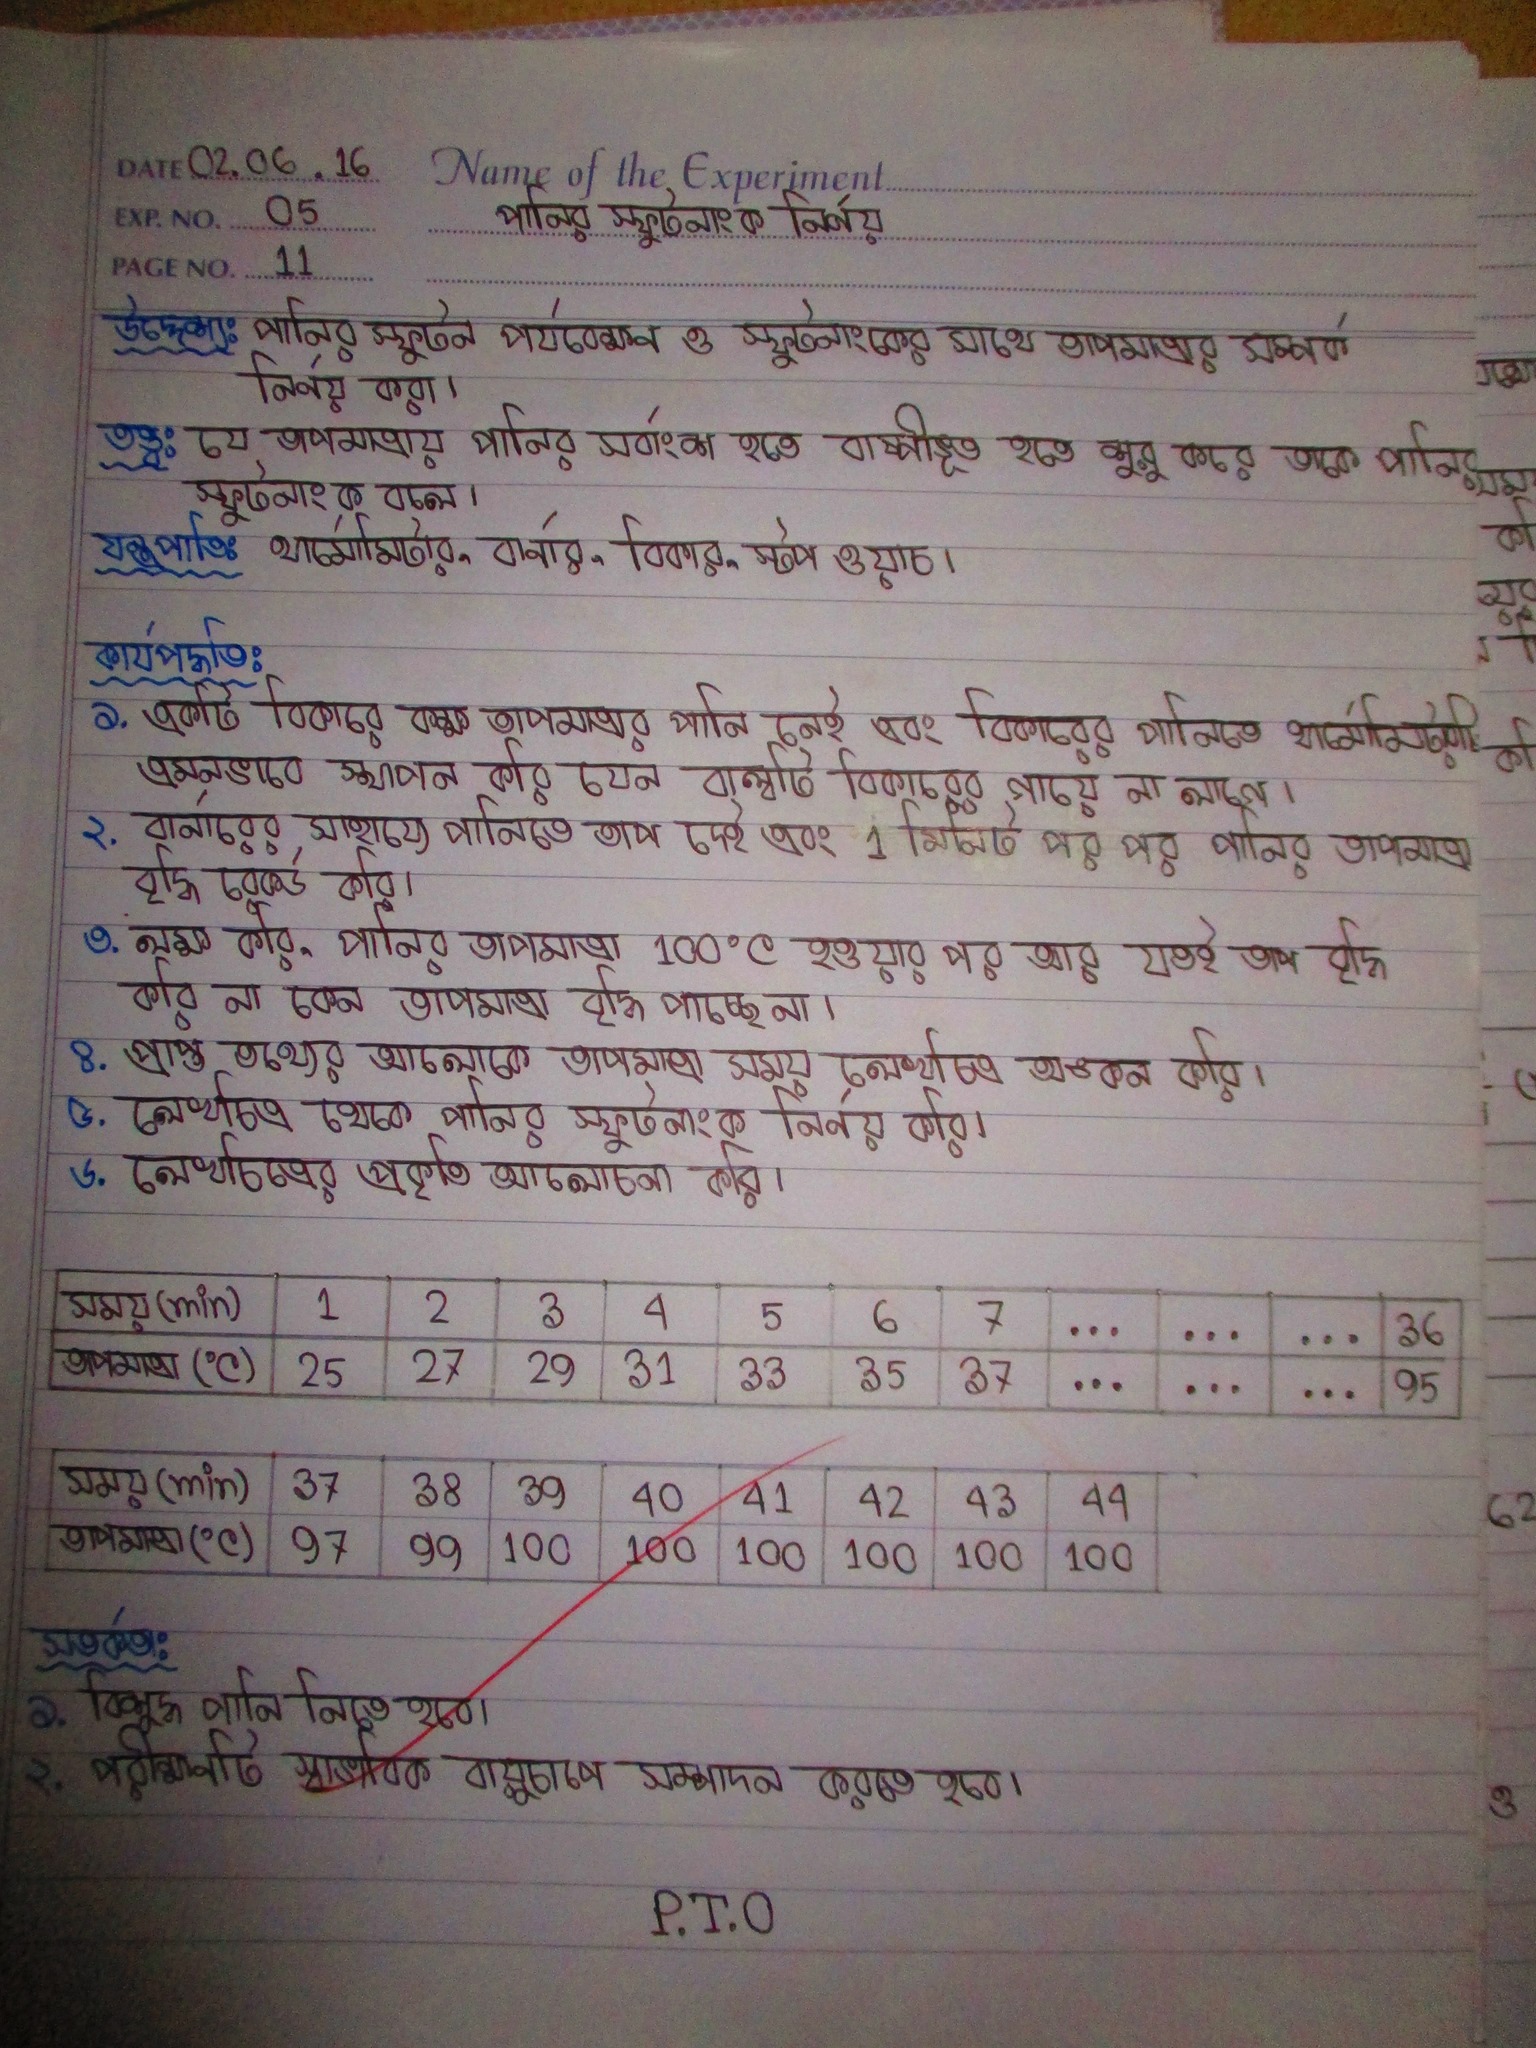 DATE 02.06.16 Name of the Experiment
EXP. NO. 05 পানির স্ফুটনাংক নির্ণয়
PAGE NO. 11
উদ্দেশ্যঃ পানির স্ফুটন পর্যবেক্ষন ও স্ফুটনাংকের সাথে তাপমাত্রার সম্পর্ক
নির্ণয় করা।
তত্ত্বঃ যে তাপমাত্রায় পানির সর্বাংশ হতে বাষ্পীভূত হতে শুরু করে তাকে পানির
স্ফুটনাংক বলে।
যন্ত্রপাতিঃ থার্মোমিটার, বার্নার, বিকার, স্টপ ওয়াচ।
কার্যপদ্ধতিঃ
১. একটি বিকারে কক্ষ তাপমাত্রার পানি নেই এবং বিকারের পানিতে থার্মোমিটারটি
এমনভাবে স্থাপন করি যেন বাল্বটি বিকারের গায়ে না লাগে।
২. বার্নারের সাহায্যে পানিতে তাপ দেই এবং 1 মিনিট পর পর পানির তাপমাত্রা
বৃদ্ধি রেকর্ড করি।
৩. লক্ষ করি, পানির তাপমাত্রা 100°C হওয়ার পর আর যতই তাপ বৃদ্ধি
করি না কেন তাপমাত্রা বৃদ্ধি পাচ্ছে না।
৪. প্রাপ্ত তথ্যের আলোকে তাপমাত্রা সময় লেখচিত্র অঙকন করি।
৫. লেখচিত্র থেকে পানির স্ফুটনাংক নির্ণয় করি।
৬. লেখচিত্রের প্রকৃতি আলোচনা করি।
সময় (min) 1 2 3 4 5 6 7 ... ... ... 36
তাপমাত্রা (°C) 25 27 29 31 33 35 37 ... ... ... 95
সময় (min) 37 38 39 40 41 42 43 44
তাপমাত্রা (°C) 97 99 100 100 100 100 100 100
সতর্কতাঃ
১. বিশুদ্ধ পানি নিতে হবে।
২. পরীক্ষাটি স্বাভাবিক বায়ুচাপে সম্পাদন করতে হবে।
P.T.O
62